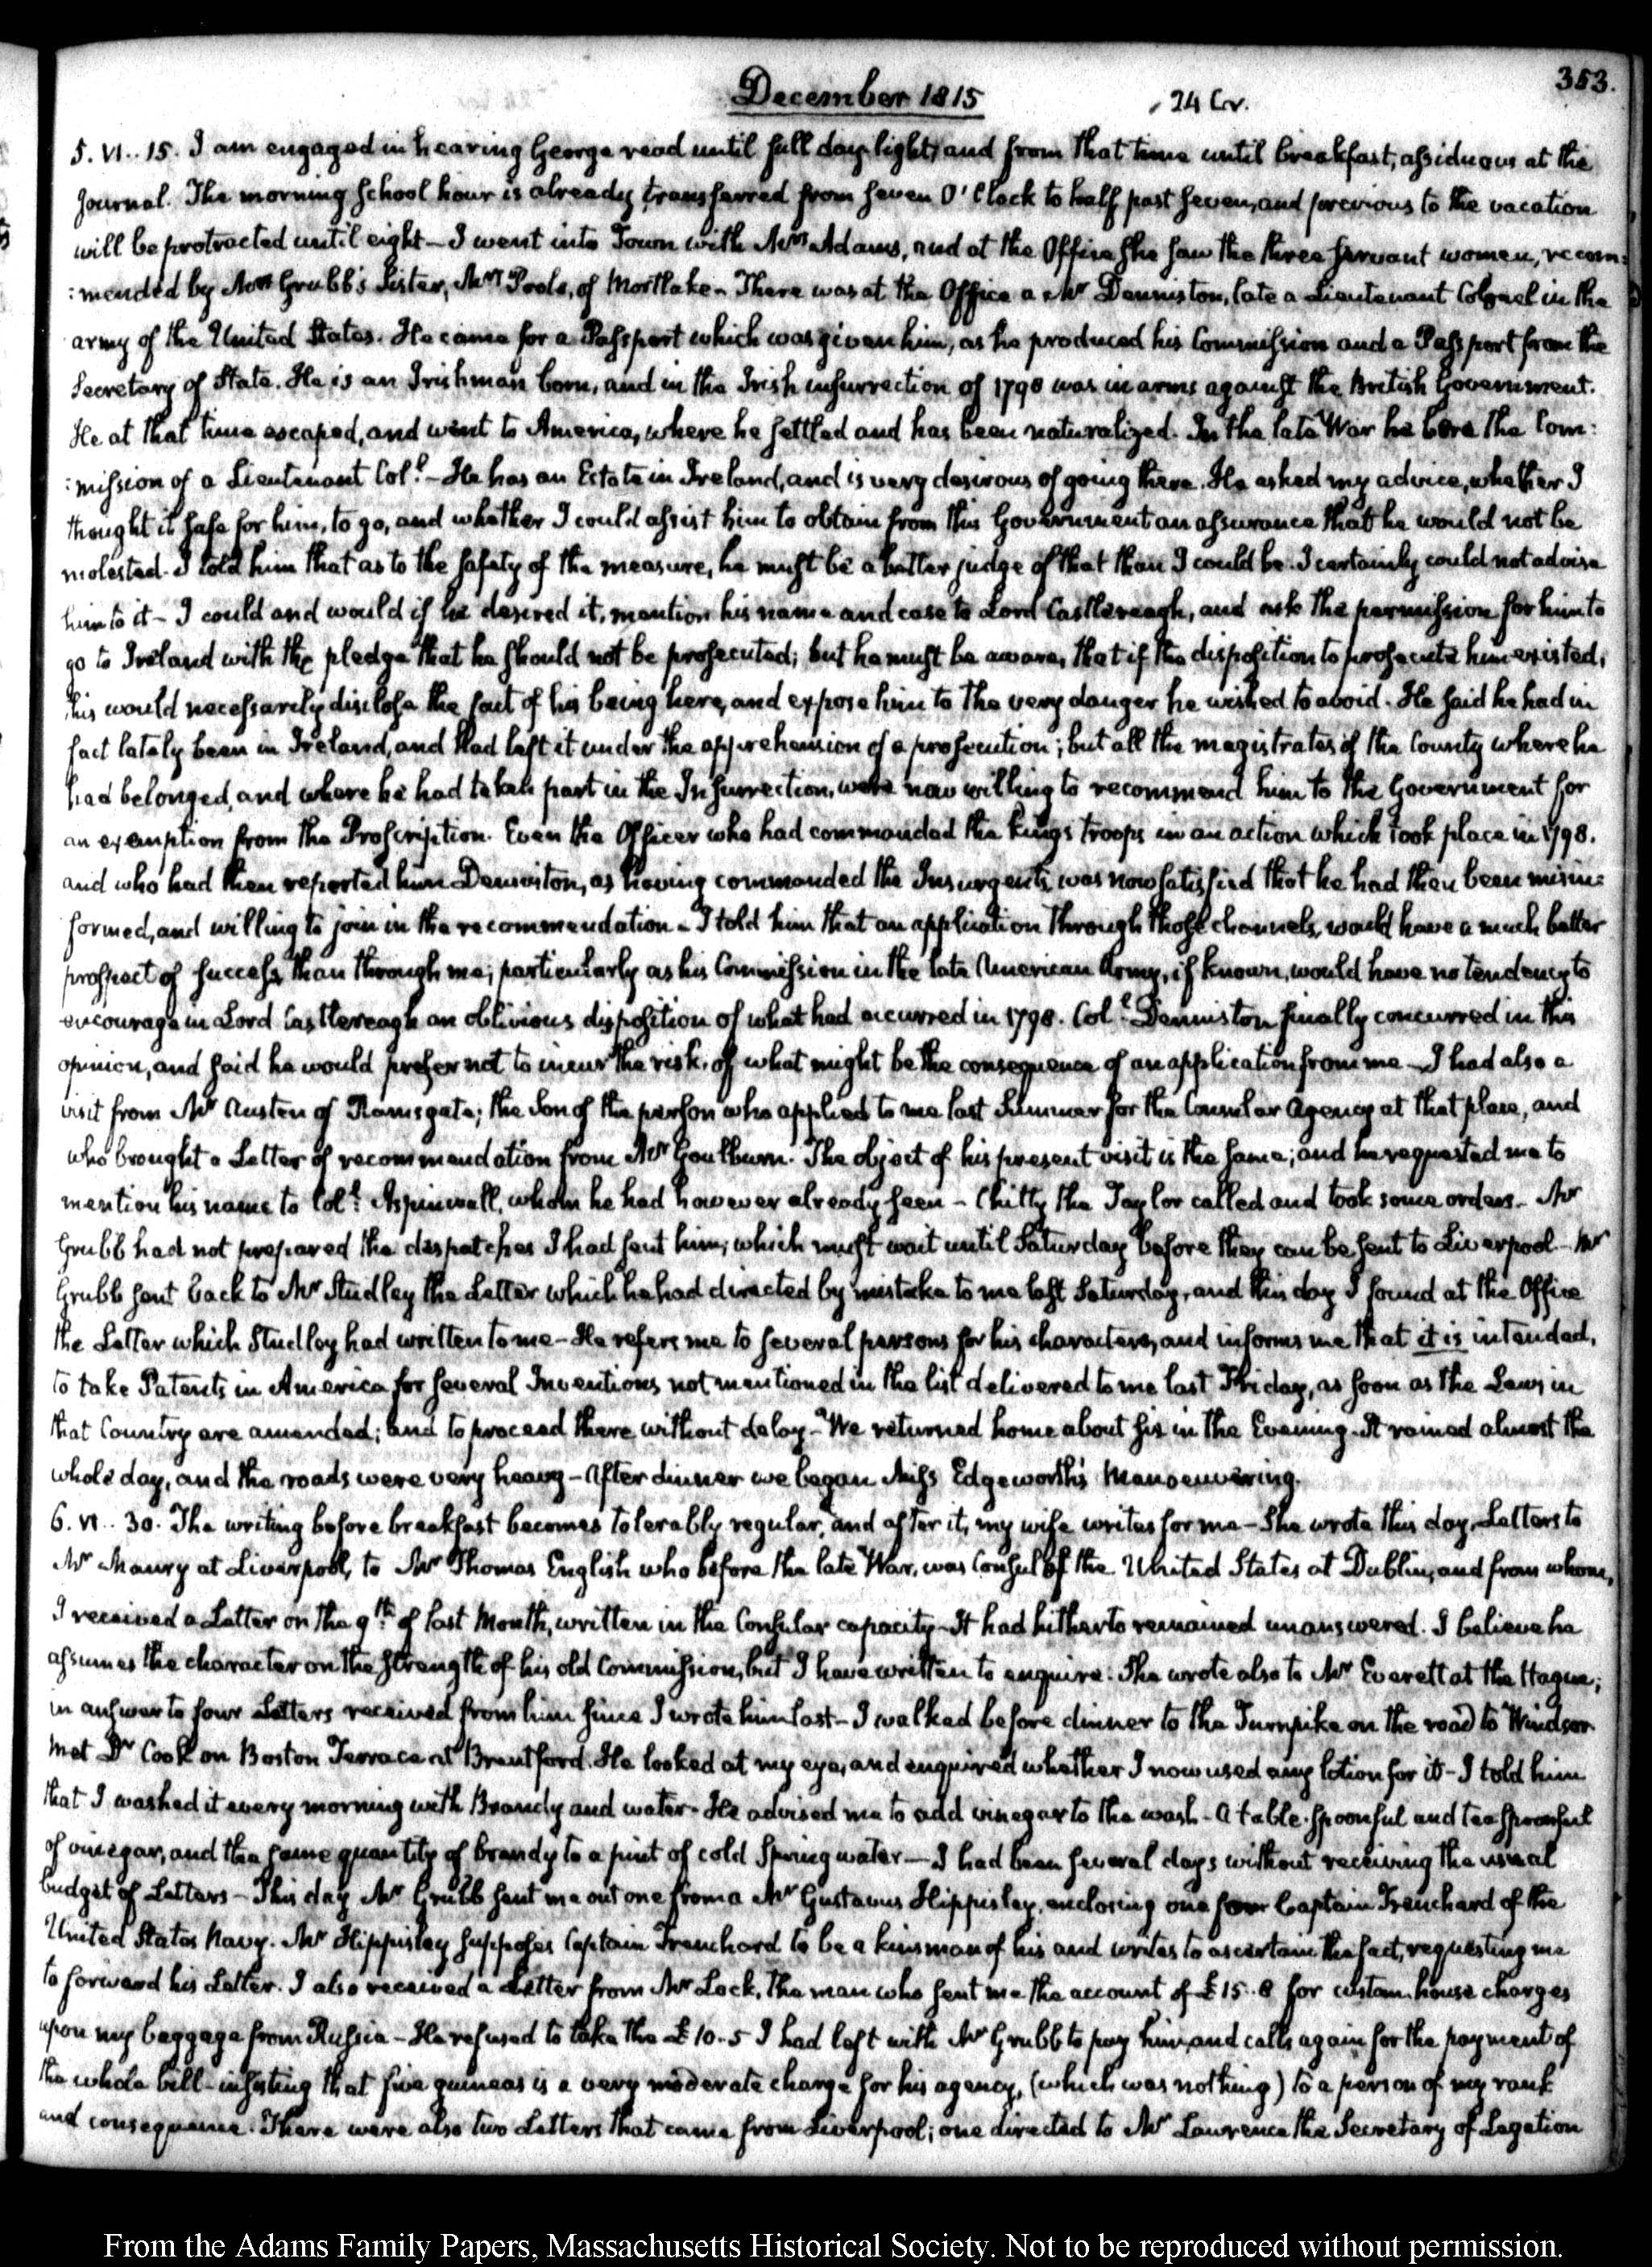 353.
December 1815
24 Cr.
5. VI.. 15. I am engaged in hearing George read until full day-light, and from that time until breakfast, assiduous at the
Journal. The morning School hour is already transferred from seven O'Clock to half past seven, and previous to the vacation
will be protracted until eight — I went into Town with Mrs Adams, and at the Office she saw the three servant women, recom:
:mended by Mrs Grubb's Sister, Mrs Poole, of Mortlake – There was at the Office a Mr Denniston, late a Lieutenant Colonel in the
army of the United States. He came for a Passport which was given him, as he produced his Commission and a Passport from the
Secretary of State. He is an Irishman born, and in the Irish insurrection of 1798 was in arms against the British Government.
He at that time escaped, and went to America, where he settled and has been naturalized. In the late War he bore the Com:
:mission of a Lieutenant Col.l – He has an Estate in Ireland, and is very desirous of going there. He asked my advice, whether I
thought it safe for him, to go, and whether I could assist him to obtain from this Government an assurance that he would not be
molested. I told him that as to the safety of the measure, he must be a better judge of that than I could be. I certainly could not advise
him to it – I could and would if he desired it, mention his name and case to Lord Castlereagh, and ask the permission for him to
go to Ireland with the pledge that he should not be prosecuted; but he must be aware, that if the disposition to prosecute him existed,
this would necessarily disclose the fact of his being here, and expose him to the very danger he wished to avoid. He said he had in
fact lately been in Ireland, and had left it under the apprehension of a prosecution; but all the magistrates of the County where he
had belonged, and where he had taken part in the Insurrection, were now willing to recommend him to the Government for
an exemption from the Proscription. Even the Officer who had commanded the kings troops in an action which took place in 1798.
and who had then reported him Denniston, as having commanded the Insurgents, was now satisfied that he had then been misin:
formed, and willing to join in the recommendation – I told him that an application through those channels, would have a much better
prospect of success than through me; particularly as his Commission in the late American Army, if known, would have no tendency to
encourage in Lord Castlereagh an oblivious disposition of what had occurred in 1798. Col.l Denniston finally concurred in this
opinion, and said he would prefer not to incur the risk, of what might be the consequence of an application from me – I had also a
visit from Mr Austen of Ramsgate; the Son of the person who applied to me last Summer for the Consular Agency at that place, and
who brought a Letter of recommendation from Mr Goulburn. The object of his present visit is the same; and he requested me to
mention his name to Col.l Aspinwall, whom he had however already seen – Chitty the Taylor called and took some orders – Mr
Grubb had not prepared the dispatches I had sent him, which must wait until Saturday before they can be sent to Liverpool – Mr
Grubb sent back to Mr Studley the Letter which he had directed by mistake to me last Saturday, and this day I found at the Office
the Letter which Studley had written to me – He refers me to several persons for his character, and informs me that it is intended,
to take Patents in America for several Inventions not mentioned in the list delivered to me last Friday, as soon as the Laws in
that Country are amended; and to proceed there without delay – We returned home about six in the Evening. It rained almost the
whole day, and the roads were very heavy – After dinner we began Miss Edgeworth's Manoeuvering.
6. VI.. 30. The writing before breakfast becomes tolerably regular, and after it, my wife writes for me – She wrote this day, Letters to
Mr Maury at Liverpool, to Mr Thomas English who before the late War, was Consul of the United States at Dublin, and from whom,
I received a Letter on the 9th of last Month, written in the Consular capacity – It had hitherto remained unanswered. I believe he
assumes the character on the strength of his old Commission, but I have written to enquire. She wrote also to Mr Everett at the Hague;
in answer to four Letters received from him since I wrote him last – I walked before dinner to the Turnpike on the road to Windsor.
Met Dr Cook on Boston Terrace at Brentford. He looked at my eye, and enquired whether I now used any lotion for it – I told him
that I washed it every morning with Brandy and water. He advised me to add vinegar to the wash – A table-spoonful and teaspoonful
of vinegar, and the same quantity of brandy to a pint of cold Spring water – I had been several days without receiving the usual
budget of Letters – This day Mr Grubb sent me out one from a Mr Gustavus Hippisley, enclosing one for Captain Trenchard of the
United States Navy. Mr Hippisley supposes Captain Trenchard to be a kinsman of his and writes to ascertain the fact, requesting me
to forward his Letter. I also received a Letter from Mr Lock, the man who sent me the account of £15..8 for custom-house charges
upon my baggage from Russia – He refused to take the £10-5 I had left with Mr Grubb to pay him, and calls again for the payment of
the whole bill – insisting that five guineas is a very moderate charge for his agency, (which was nothing) to a person of my rank
and consequence. There were also two Letters that came from Liverpool; one directed to Mr Lawrence the Secretary of Legation
From the Adams Family Papers, Massachusetts Historical Society. Not to be reproduced without permission.